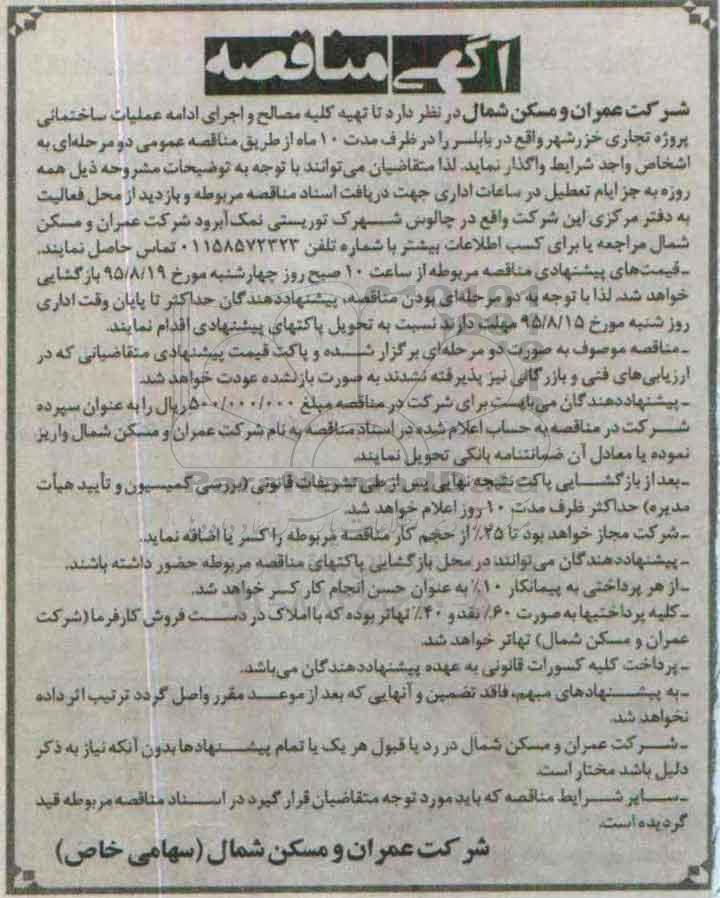 آگهی مناقصه
شرکت عمران و مسکن شمال در نظر دارد تا تهیه کلیه مصالح و اجرای ادامه عملیات ساختمانی
پروژه تجاری خزرشهر واقع در بابلسر را در ظرف مدت ۱۰ ماه از طریق مناقصه عمومی دو مرحله‌ای به
اشخاص واجد شرایط واگذار نماید. لذا متقاضیان می‌توانند با توجه به توضیحات مشروحه ذیل همه
روزه به جز ایام تعطیل در ساعات اداری جهت دریافت اسناد مناقصه مربوطه و بازدید از محل فعالیت
به دفتر مرکزی این شرکت واقع در چالوس شهرک توریستی نمک‌آبرود شرکت عمران و مسکن
شمال مراجعه یا برای کسب اطلاعات بیشتر با شماره تلفن ۰۱۱۵۸۵۷۲۳۲۳ تماس حاصل نمایند.
ـ قیمت‌های پیشنهادی مناقصه مربوطه از ساعت ۱۰ صبح روز چهارشنبه مورخ ۹۵/۸/۱۹ بازگشایی
خواهد شد. لذا با توجه به دو مرحله‌ای بودن مناقصه، پیشنهاددهندگان حداکثر تا پایان وقت اداری
روز شنبه مورخ ۹۵/۸/۱۵ مهلت دارند نسبت به تحویل پاکتهای پیشنهادی اقدام نمایند.
ـ مناقصه موصوف به صورت دو مرحله‌ای برگزار شده و پاکت قیمت پیشنهادی متقاضیانی که در
ارزیابی‌های فنی و بازرگانی نیز پذیرفته نشدند به صورت بازنشده عودت خواهد شد.
ـ پیشنهاددهندگان می‌بایست برای شرکت در مناقصه مبلغ ۵۰۰/۰۰۰/۰۰۰ ریال را به عنوان سپرده
شرکت در مناقصه به حساب اعلام شده در اسناد مناقصه به نام شرکت عمران و مسکن شمال واریز
نموده یا معادل آن ضمانتنامه بانکی تحویل نمایند.
ـ بعد از بازگشایی پاکت نتیجه نهایی پس از طی تشریفات قانونی (بررسی کمیسیون و تأیید هیأت
مدیره) حداکثر ظرف مدت ۱۰ روز اعلام خواهد شد.
ـ شرکت مجاز خواهد بود تا ۲۵٪ از حجم کار مناقصه مربوطه را کسر یا اضافه نماید.
ـ پیشنهاددهندگان می‌توانند در محل بازگشایی پاکتهای مناقصه مربوطه حضور داشته باشند.
ـ از هر پرداختی به پیمانکار ۱۰٪ به عنوان حسن انجام کار کسر خواهد شد.
ـ کلیه پرداختیها به صورت ۶۰٪ نقد و ۴۰٪ تهاتر بوده که با املاک در دست فروش کارفرما (شرکت
عمران و مسکن شمال) تهاتر خواهد شد.
ـ پرداخت کلیه کسورات قانونی به عهده پیشنهاددهندگان می‌باشد.
ـ به پیشنهادهای مبهم، فاقد تضمین و آنهایی که بعد از موعد مقرر واصل گردد ترتیب اثر داده
نخواهد شد.
ـ شرکت عمران و مسکن شمال در رد یا قبول هر یک یا تمام پیشنهادها بدون آنکه نیاز به ذکر
دلیل باشد مختار است.
ـ سایر شرایط مناقصه که باید مورد توجه متقاضیان قرار گیرد در اسناد مناقصه مربوطه قید
گردیده است.
شرکت عمران و مسکن شمال (سهامی خاص)